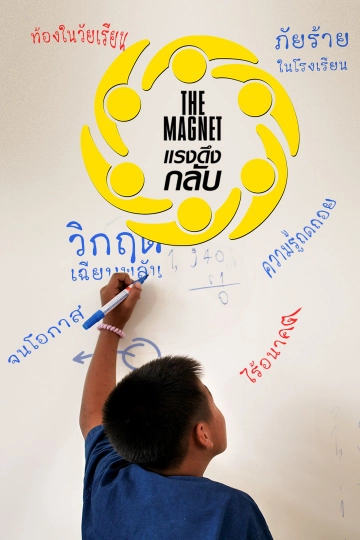 ท้องในวัยเรียน
ภัยร้าย
ในโรงเรียน
THE
MAGNET
แรงดึง
กลับ
วิกฤต
เฉียบพลัน
ความรู้ถดถอย
จนโอกาส
ไร้อนาคต